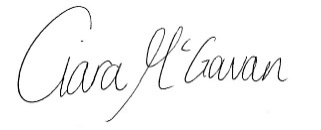 Ciara McGavan